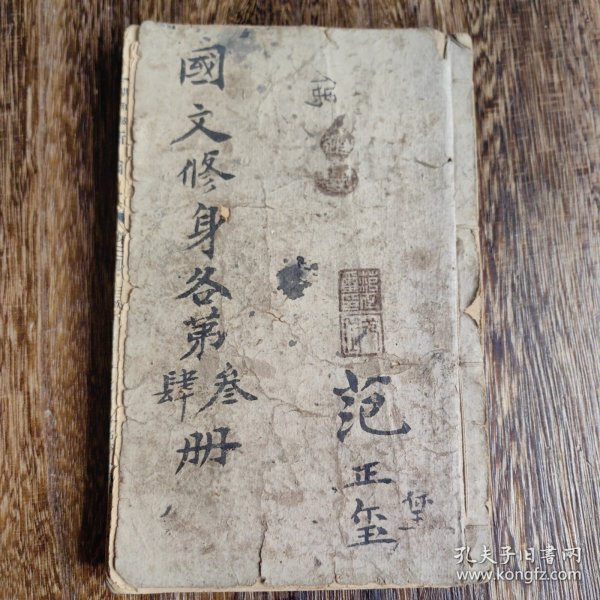 范正玺
國文修身各第叁肆册
孔夫子旧書网
www.kongfz.com